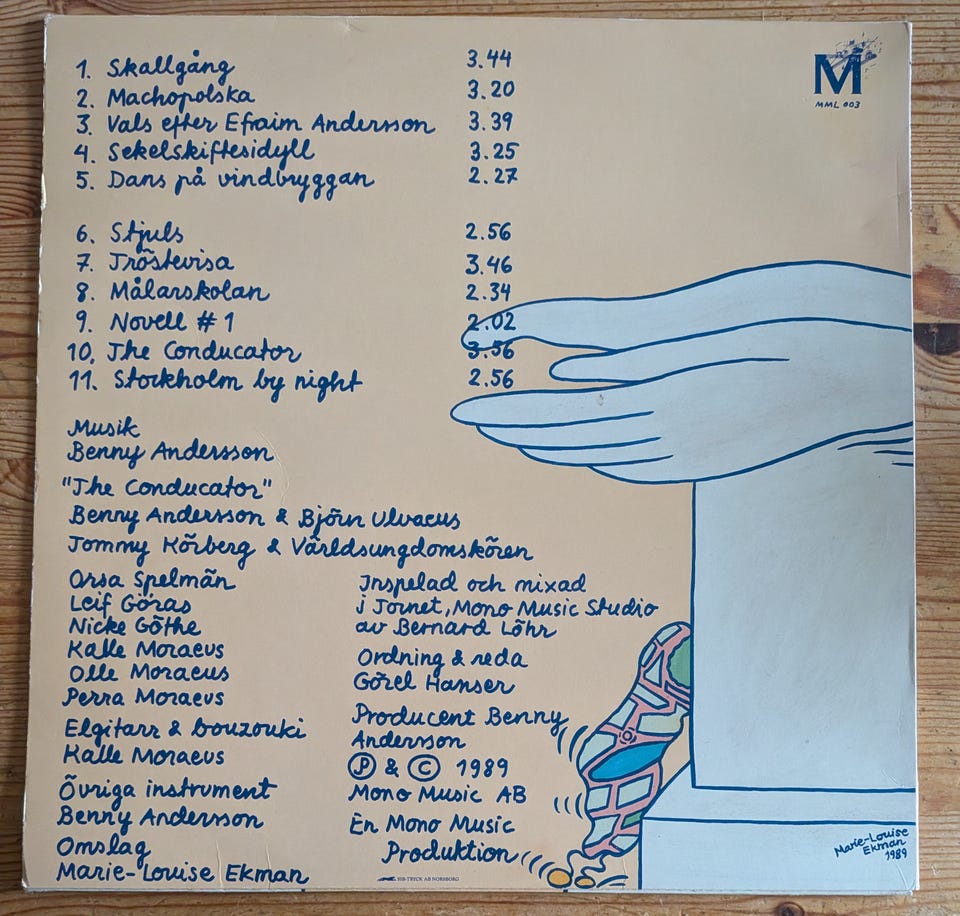 1. Skallgång 3.44
2. Machopolska 3.20
3. Vals efter Efraim Andersson 3.39
4. Sekelskiftesidyll 3.25
5. Dans på vindbryggan 2.27
6. Stjuls 2.56
7. Tröstevisa 3.46
8. Målarskolan 2.34
9. Novell # 1 2.02
10. The Conducator 3.56
11. Stockholm by night 2.56
M
MML 003
Musik
Benny Andersson
"The Conducator"
Benny Andersson & Björn Ulvaeus
Tommy Körberg & Världsungdomskören
Orsa Spelmän
Leif Göras
Nicke Göthe
Kalle Moraeus
Olle Moraeus
Perra Moraeus
Elgitarr & bouzouki
Kalle Moraeus
Övriga instrument
Benny Andersson
Omslag
Marie-Louise Ekman
Inspelad och mixad
i Tornet, Mono Music Studio
av Bernard Löhr
Ordning & reda
Görel Hanser
Producent Benny
Andersson
Ⓟ & © 1989
Mono Music AB
En Mono Music
Produktion
TIB-TRYCK AB NORSBORG
Marie-Louise
Ekman
1989